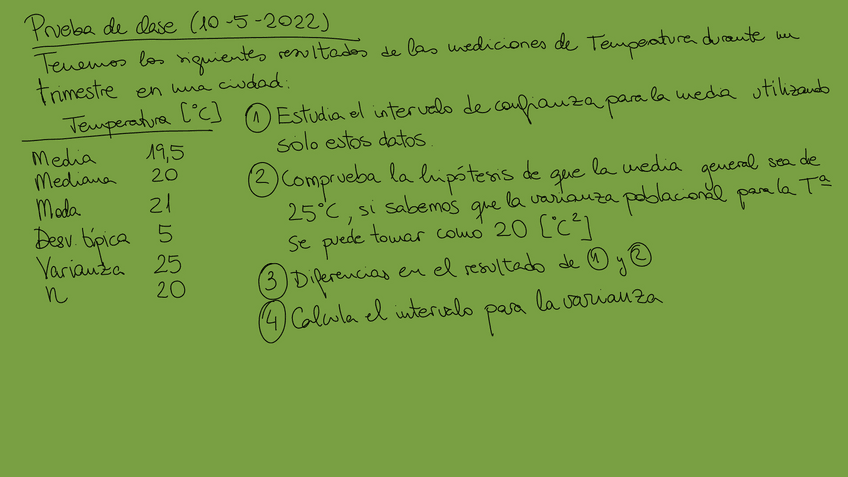 Prueba de clase (10-5-2022)
Tenemos los siguientes resultados de las mediciones de Temperatura durante un
trimestre en una ciudad:
Temperatura [°C]
Media 19,5
Mediana 20
Moda 21
Desv. típica 5
Varianza 25
n 20
① Estudia el intervalo de confianza para la media utilizando
solo estos datos.
② Comprueba la hipótesis de que la media general sea de
25°C, si sabemos que la varianza poblacional para la Tª
se puede tomar como 20 [°C²]
③ Diferencias en el resultado de ① y ②
④ Calcula el intervalo para la varianza